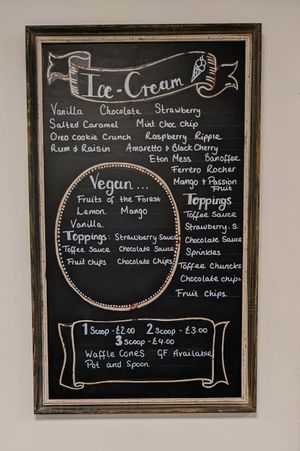 Ice-Cream
Vanilla Chocolate Strawberry
Salted Caramel Mint Choc chip
Oreo cookie Crunch Raspberry Ripple
Rum & Raisin Amaretto & Black Cherry
Eton Mess Banoffee
Ferrero Rocher
Mango & Passion
Fruit
Vegan...
Fruits of the Forest
Lemon Mango
Vanilla
Toppings: Strawberry Sauce
Toffee Sauce Chocolate Sauce
Fruit chips Chocolate Chips
Toppings
Toffee Sauce
Strawberry. S.
Chocolate Sauce
Sprinkles
Toffee Chuncks
Chocolate chips
Fruit Chips
1 Scoop - £2.00 2 Scoop - £3.00
3 Scoop - £4.00
Waffle Cones GF Available
Pot and Spoon